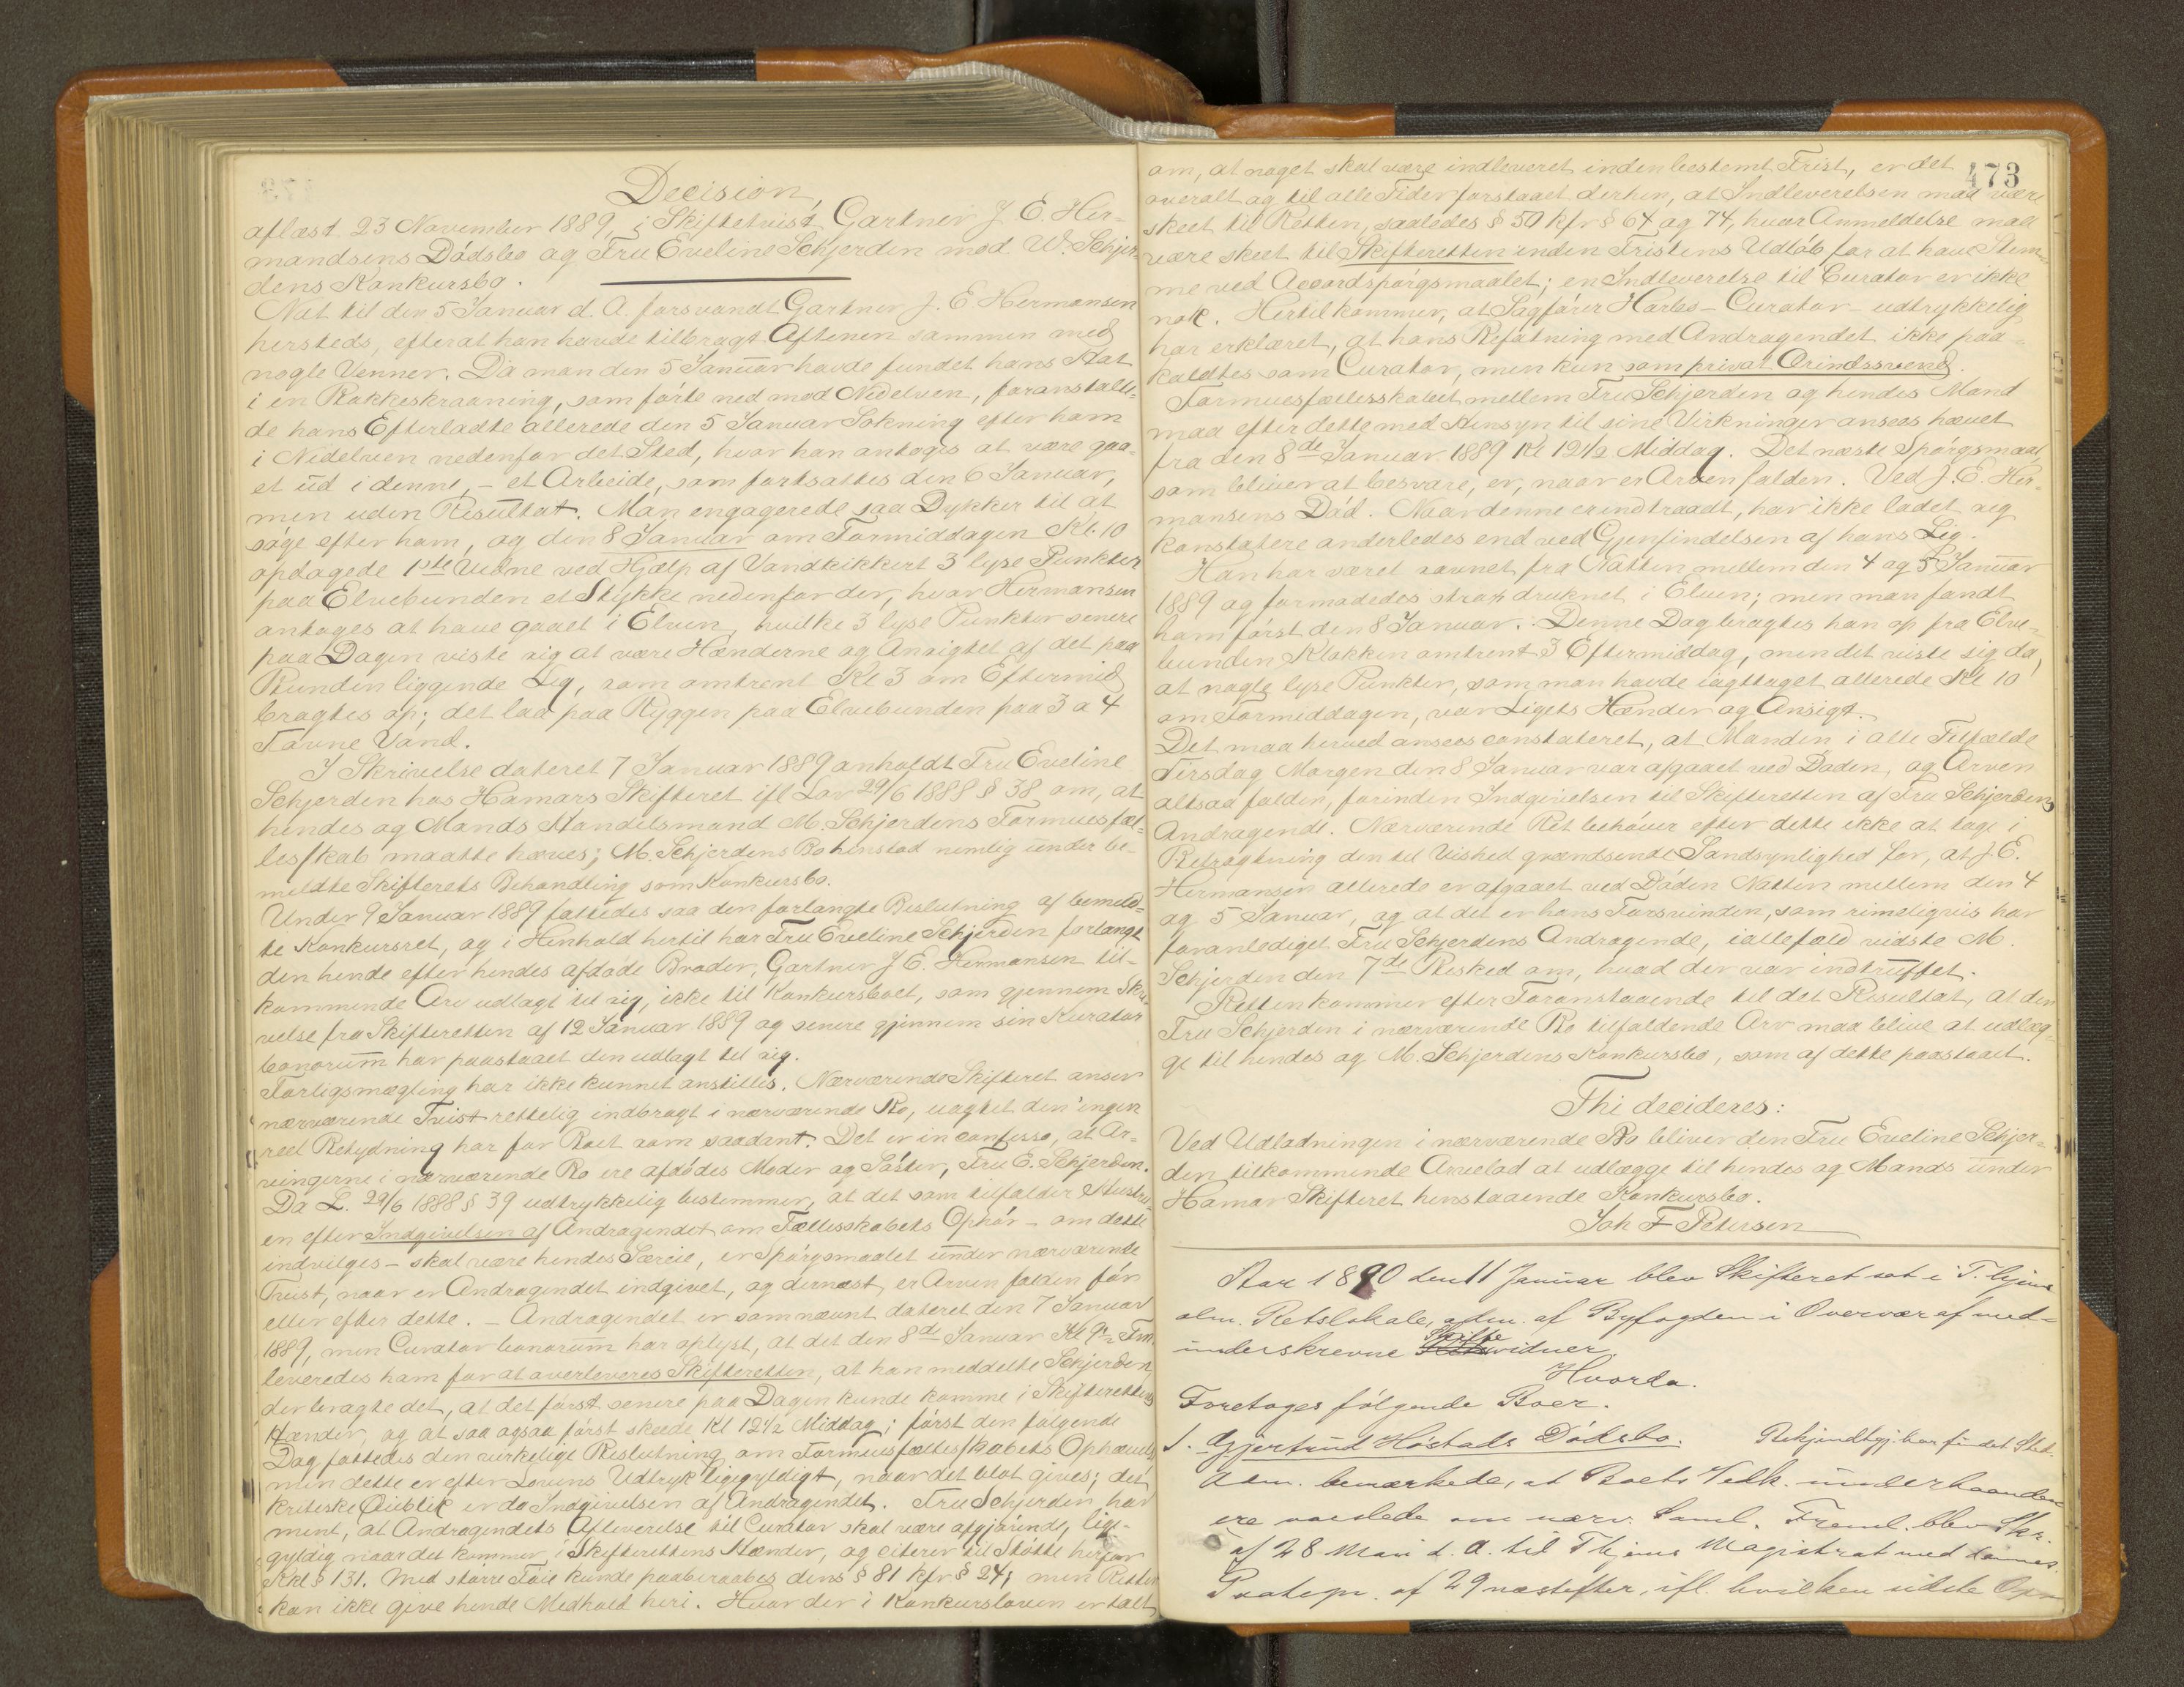 Decision,
aflæst 23 November 1889, i Skiftetvist, Gartner J. E. Her-
mandsens Dødsbo og Fru Eveline Schjerden mod W. Schjer-
dens Konkursbo.
Nat til den 5 Januar d. A. forsvandt Gartner J. E Hermansen
hersteds, efterat han havde tilbragt Aftenen sammen med
nogle Venner. Da man den 5 Januar havde fundet hans Hat
i en Bakkeskraaning, som førte ned mod Nidelven, foranstalte-
de hans Efterladte allerede den 5 Januar Søkning efter ham
i Nidelven nedenfor det Sted, hvor han antoges at være gaa-
et ud i denne, – et Arbeide, som fortsattes den 6 Januar,
men uden Resultat. Man engagerede saa Dykker til at
søge efter ham, og den 8 Januar om Formiddagen Kl. 10
opdagede 1ste Vidne ved Hjælp af Vandkikkert 3 lyse Punkter
paa Elvebunden et Stykke nedenfor der, hvor Hermansen
antoges at have gaaet i Elven, hvilke 3 lyse Punkter senere
paa Dagen viste sig at være Hænderne og Ansigtet af det paa
Bunden liggende Lig, som omtrent Kl 3 om Eftermid
bragtes op; det laa paa Ryggen paa Elvebunden paa 3 a 4
Favne Vand.
I Skrivelse dateret 7 Januar 1889 anholdt Fru Eveline
Schjerden hos Hamars Skifteret ifl Lov 29/6 1888 § 38 om, at
hendes og Mands Handelsmand M. Schjerdens Formuesfæl-
lesskab maatte hæves; M. Schjerdens Bo henstod nemlig under be-
meldte Skifterets Behandling som Konkursbo.
Under 9 Januar 1889 fattedes saa den forlangte Beslutning af bemeld-
te Konkursret, og i Henhold hertil har Fru Eveline Schjerden forlangt
den hende efter hendes afdøde Broder, Gartner J E. Hermansen til-
kommende Arv udlagt til sig, ikke til Konkursboet, som gjennem Skri-
velse fra Skifteretten af 12 Januar 1889 og senere gjennem sin Kurator
bonorum har paastaaet den udlagt til sig.
Forligsmægling har ikke kunnet anstilles. Nærværende Skifteret anser
nærværende Tvist rettelig indbragt i nærværende Bo, uagtet den ingen
reel Betydning har for Boet som saadant. Det er in confesso, at Ar-
vingerne i nærværende Bo ere afdødes Moder og Søster, Fru E. Schjerden.
Da L. 29/6 1888 § 39 udtrykkelig bestemmer, at det som tilfalder Hustru-
en efter Indgivelsen af Andragendet om Fællesskabets Ophør – om dette
indvilges – skal være hendes Særeie, er Spørgsmaalet under nærværende
Tvist, naar er Andragendet indgivet, og dernæst, er Arven falden før
eller efter dette. – Andragendet er som nævnt dateret den 7 Januar
1889, men Curator bonorum har oplyst, at det den 8de Januar Kl 9 1/2 Fm
leveredes ham for at overleveres Skifteretten, at han meddelte Schjerden
der bragte det, at det først senere paa Dagen kunde komme i Skifterettens
Hænder, og at saa ogsaa først skeede Kl 12 1/2 Middag; først den følgende
Dag fattedes den virkelige Beslutning om Formuesfællesskabets Ophævels
men dette er efter Lovens Udtryk ligegyldigt, naar det blot gives; det
kritiske Øieblik er da Indgivelsen af Andragendet. Fru Schjerden har
ment, at Andragendets Afleverelse til Curator skal være afgjørende, lige-
gyldig naar det kommer i Skifterettens Hænder, og citerer til Støtte herfor
Kkl § 131. Med større Føie kunde paaberaabes dens § 81 kfr § 24, men Retten
kan ikke give hende Medhold heri. Hvor der i Konkursloven er talt
473
om, at noget skal være indleveret inden bestemt Frist, er det
overalt og til alle Tider forstaaet derhen, at Indleverelsen maa være
skeet til Retten, saaledes § 50 kfr § 64 og 74, hvor Anmeldelse maa
være skeet til Skifteretten inden Fristens Udløb for at have Stem-
me ved Accordspørgsmaalet; en Indleverelse til Curator er ikke
nok. Hertil kommer, at Sagfører Harbo – Curator – udtrykkelig
har erklæret, at hans Befatning med Andragendet ikke paa-
kaldtes som Curator, men kun som privat Ærindssvend.
Formuesfællesskabet mellem Fru Schjerden og hendes Mand
maa efter dette med Hensyn til sine Virkninger ansees hævet
fra den 8de Januar 1889 Kl 12 1/2 Middag. Det næste Spørgsmaal,
som bliver at besvare, er, naar er Arven falden. Ved J. E. Her-
mansens Død. Naar denne er indtraadt, har ikke ladet sig
konstatere anderledes end ved Gjenfindelsen af hans Lig.
Han har været savnet fra Natten mellem den 4 og 5 Januar
1889 og formodedes strax druknet i Elven; men man fandt
ham først den 8 Januar. Denne Dag bragtes han op fra Elve-
bunden Klokken omtrent 3 Eftermiddag, men det viste sig da,
at nogle lyse Punkter, som man havde iagttaget allerede Kl 10
om Formiddagen, var Ligets Hænder og Ansigt.
Det maa herved ansees constateret, at Manden i alle Tilfælde
Tirsdag Morgen den 8 Januar var afgaaet ved Døden, og Arven
altsaa falden, forinden Indgivelsen til Skifteretten af Fru Schjerdens
Andragende. Nærværende Ret behøver efter dette ikke at tage i
Betragtning den til Vished grændsende Sandsynlighed for, at J. E.
Hermansen allerede er afgaaet ved Døden Natten mellem den 4
og 5 Januar, og at det er hans Forsvinden, som rimeligvis har
foranlediget Fru Schjerdens Andragende, iallefald vidste M.
Schjerden den 7de Besked om, hvad der var indtruffet.
Retten kommer efter Foranstaaende til det Resultat, at den
Fru Schjerden i nærværende Bo tilfaldende Arv maa blive at udlæg-
ge til hendes og M. Schjerdens Konkursbo, som af dette paastaaet.
Thi decideres:
Ved Udlodningen i nærværende Bo bliver den Fru Eveline Schjer-
den tilkommende Arvelod at udlægge til hendes og Mands under
Hamar Skifteret henstaaende Konkursbo.
Joh F Petersen
Aar 1890 den 11 Januar blev Skifteret sat i T.hjems
alm. Retslokale, adm. af Byfogden i Overvær af med-
underskrevne Skiftevidner.
Hvorda.
Foretoges følgende Boer.
1. Gjertrud Høstads Dødsbo.
Adm. bemærkede, at Boets Vedk. underhaanden
ere varslede om nærv. Saml. Freml. blev Skr.
af 28 Mai d. A. til T hjems Magistrat med dennes
Paategn. af 29 næstefter, ifl. hvilken sidste